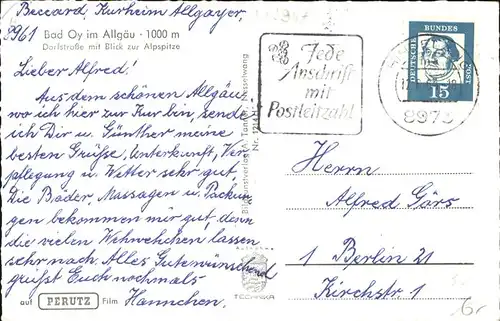 Beccard, Kurheim Allgayer,
8961 Bad Oy im Allgäu · 1000 m
Dorfstraße mit Blick zur Alpspitze
Lieber Alfred!
Aus dem schönen Allgäu,
wo ich hier zur Kur bin, sende
ich Dir u. Günther meine
besten Grüße, Unterkunft, Ver
pflegung u. Wetter sehr gut.
Die Bäder, Massagen u. Packun
gen bekommen mir gut, denn
die vielen Wehwehchen, lassen
sehr nach. Alles Gutewünschend
grüßt Euch nochmals
Hannchen.
auf PERUTZ Film
TECHNIKA
Nesselwang
Nr.
Jede
Anschrift
mit
Postleitzahl
DEUTSCHE
BUNDES
POST
15
8973
Herrn
Alfred Görs
1 Berlin 21
Kirchstr. 1